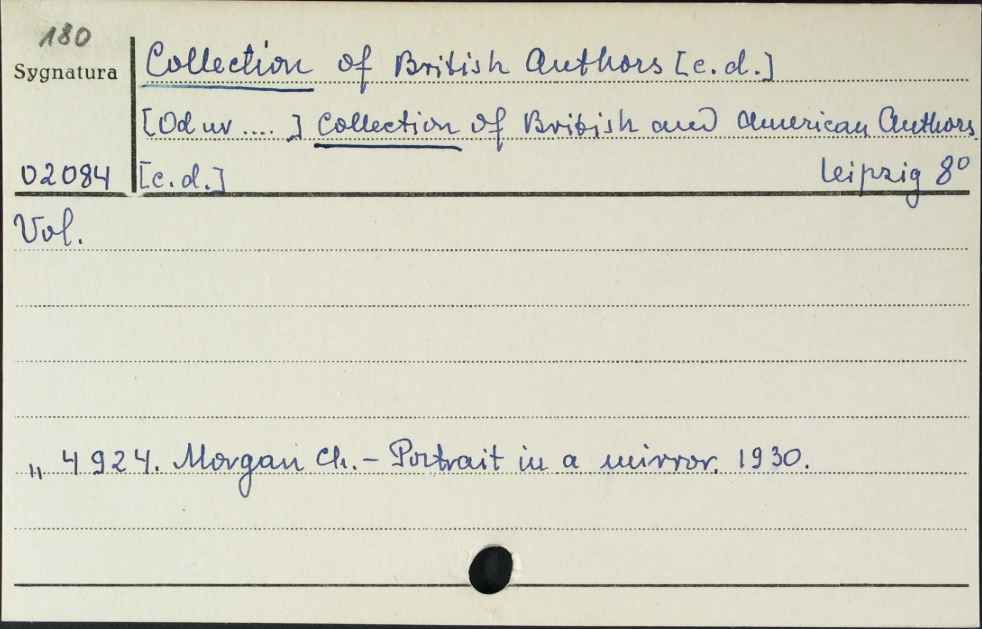 180
Sygnatura
Collection of British Authors [c.d.]
[Od nr .... ] Collection of British and American Authors
02084 [c.d.] Leipzig 8°
Vol.
„ 4924. Morgan Ch. – Portrait in a mirror. 1930.